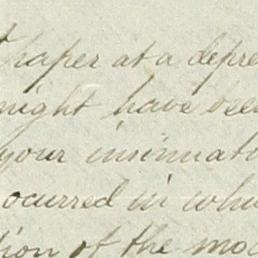 paper at a depre
might have been
your insinuati
ocurred in whi
tion of the mo